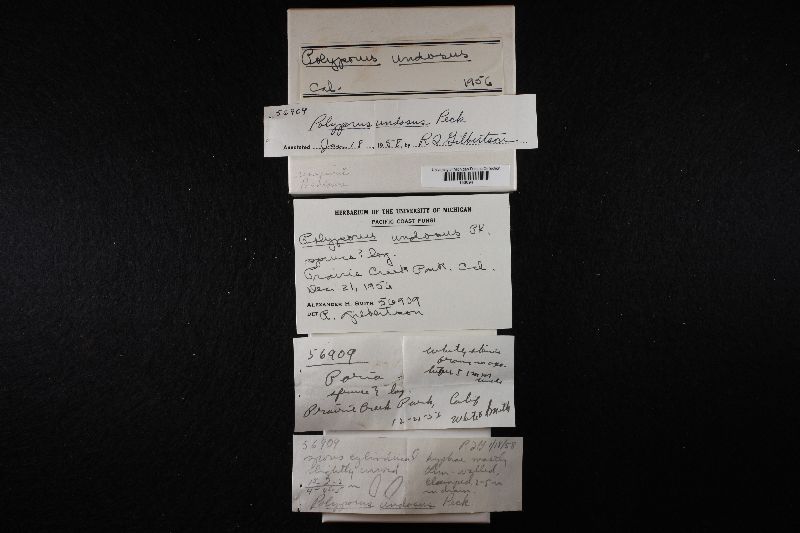 Polyporus undosus
Cal. 1956
56909
Polyporus undosus Peck
Annotated Jan 18 1958 by R L Gilbertson
University of Michigan Fungus Collection
HERBARIUM OF THE UNIVERSITY OF MICHIGAN
PACIFIC COAST FUNGI
Polyporus undosus Pk.
spruce? log.
Prairie Creek Park. Cal.
Dec 21, 1956
ALEXANDER H. SMITH 56909
DET R. Gilbertson
56909
Poria -
spruce? log.
Prairie Creek Park, Calif
12-21-56
White
tubes 5 mm
56909
spores cylindrical
slightly curved
hyphae mostly
thin-walled,
clamped, 2-5 m
in diam.
Polyporus undosus Peck